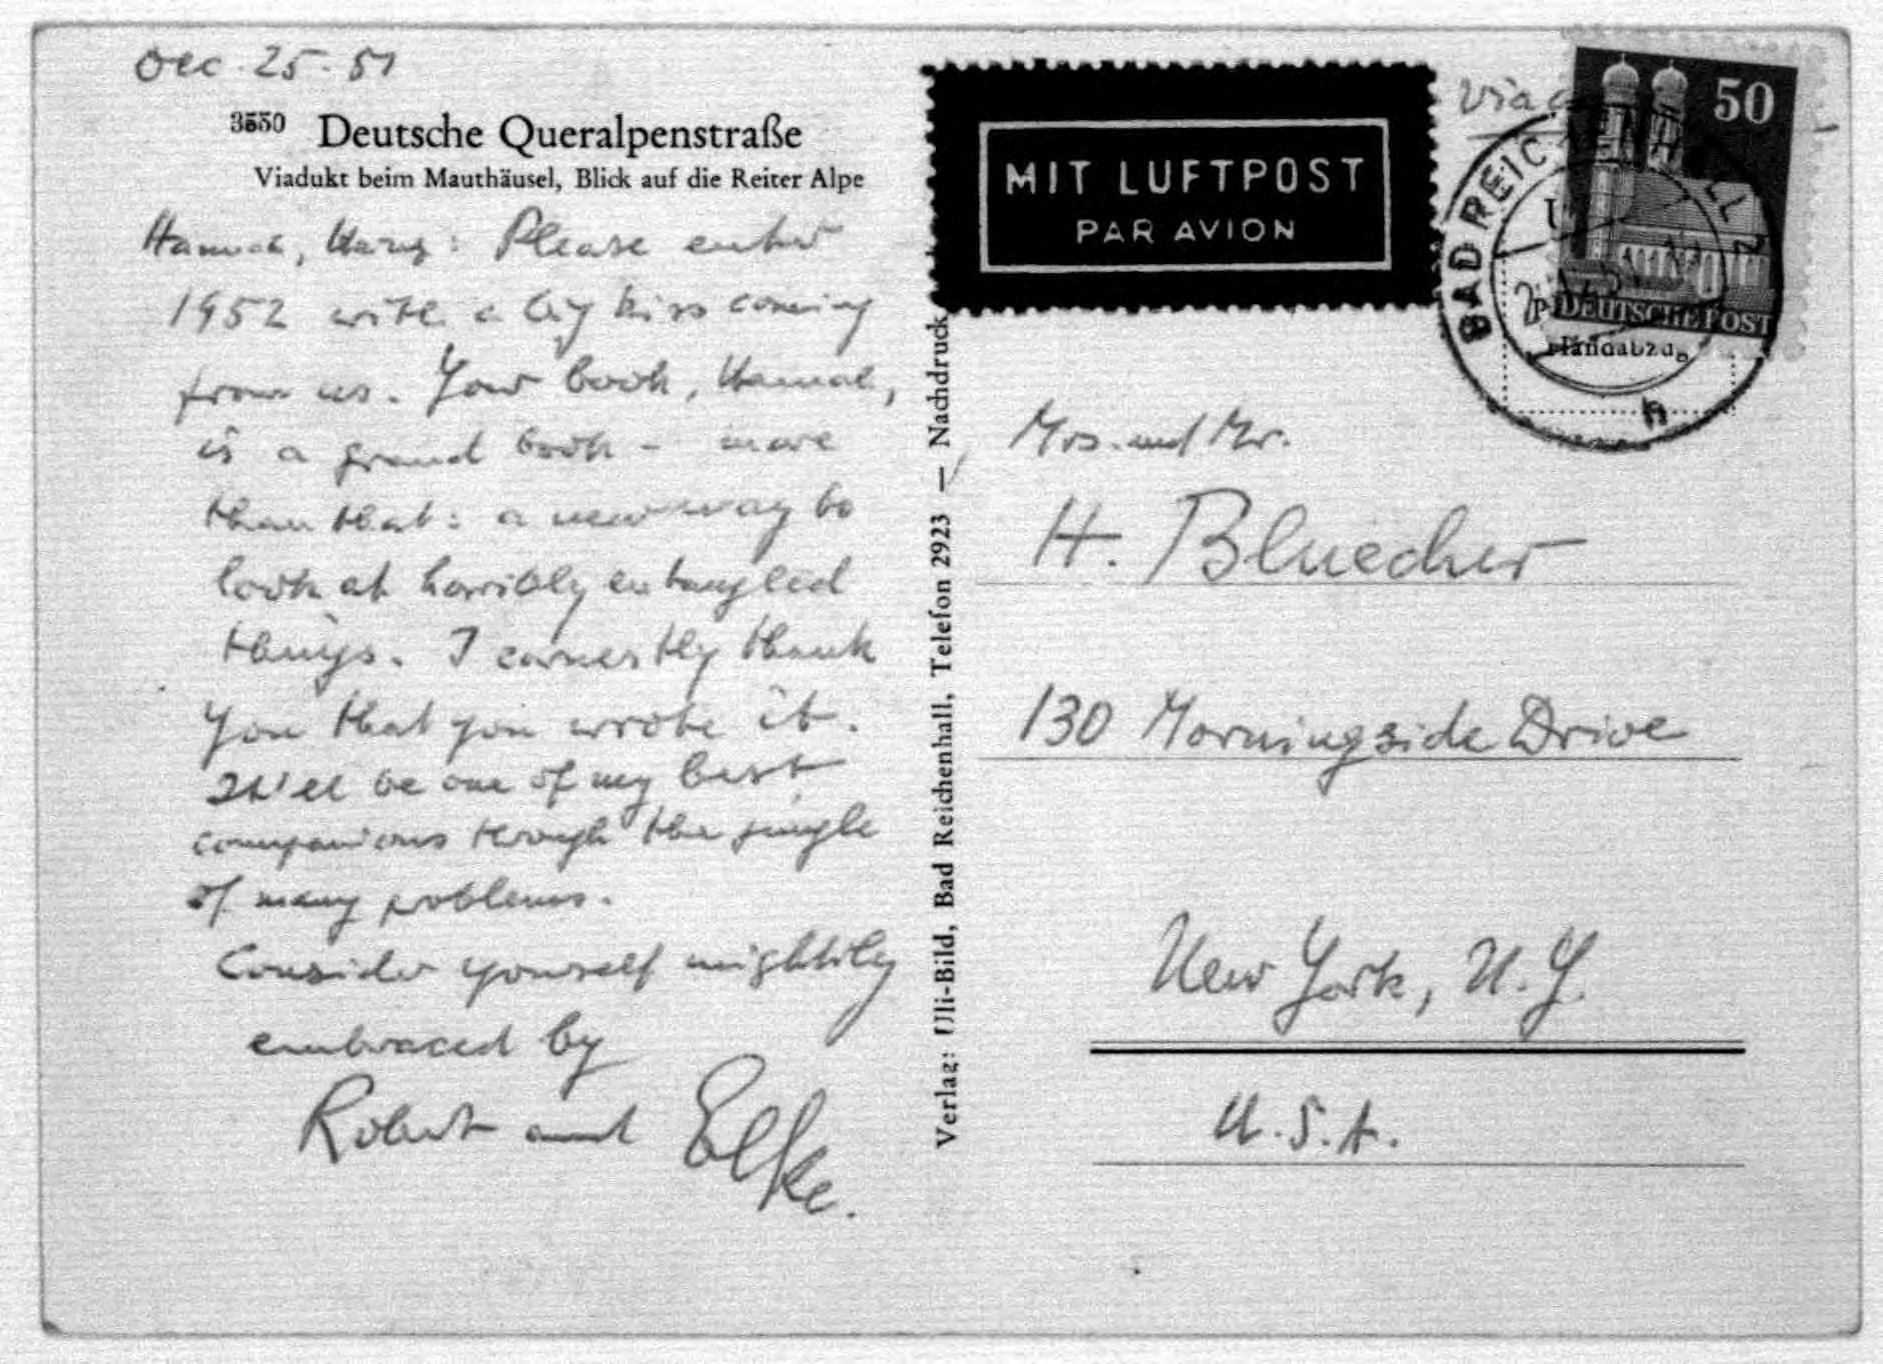 Dec. 25. 51
3550 Deutsche Queralpenstraße
Viadukt beim Mauthäusel, Blick auf die Reiter Alpe
Hannah, : Please enter
1952 with a big kiss coming
from us. Your book, Hannah,
is a grand book - more
than that: a new way to
look at horribly entangled
things. I earnestly thank
you that you wrote it.
It'll be one of my best
companions through the jungle
of many problems.
Consider yourself mightily
embraced by
Robert and Elke.
Verlag: Uli-Bild, Bad Reichenhall, Telefon 2923 — Nachdruck
MIT LUFTPOST
PAR AVION
via
50
DEUTSCHE POST
BAD REICHENHALL 2
h
Handabzug
Mrs. and Mr.
H. Bluecher
130 Morningside Drive
New York, N.Y.
U.S.A.